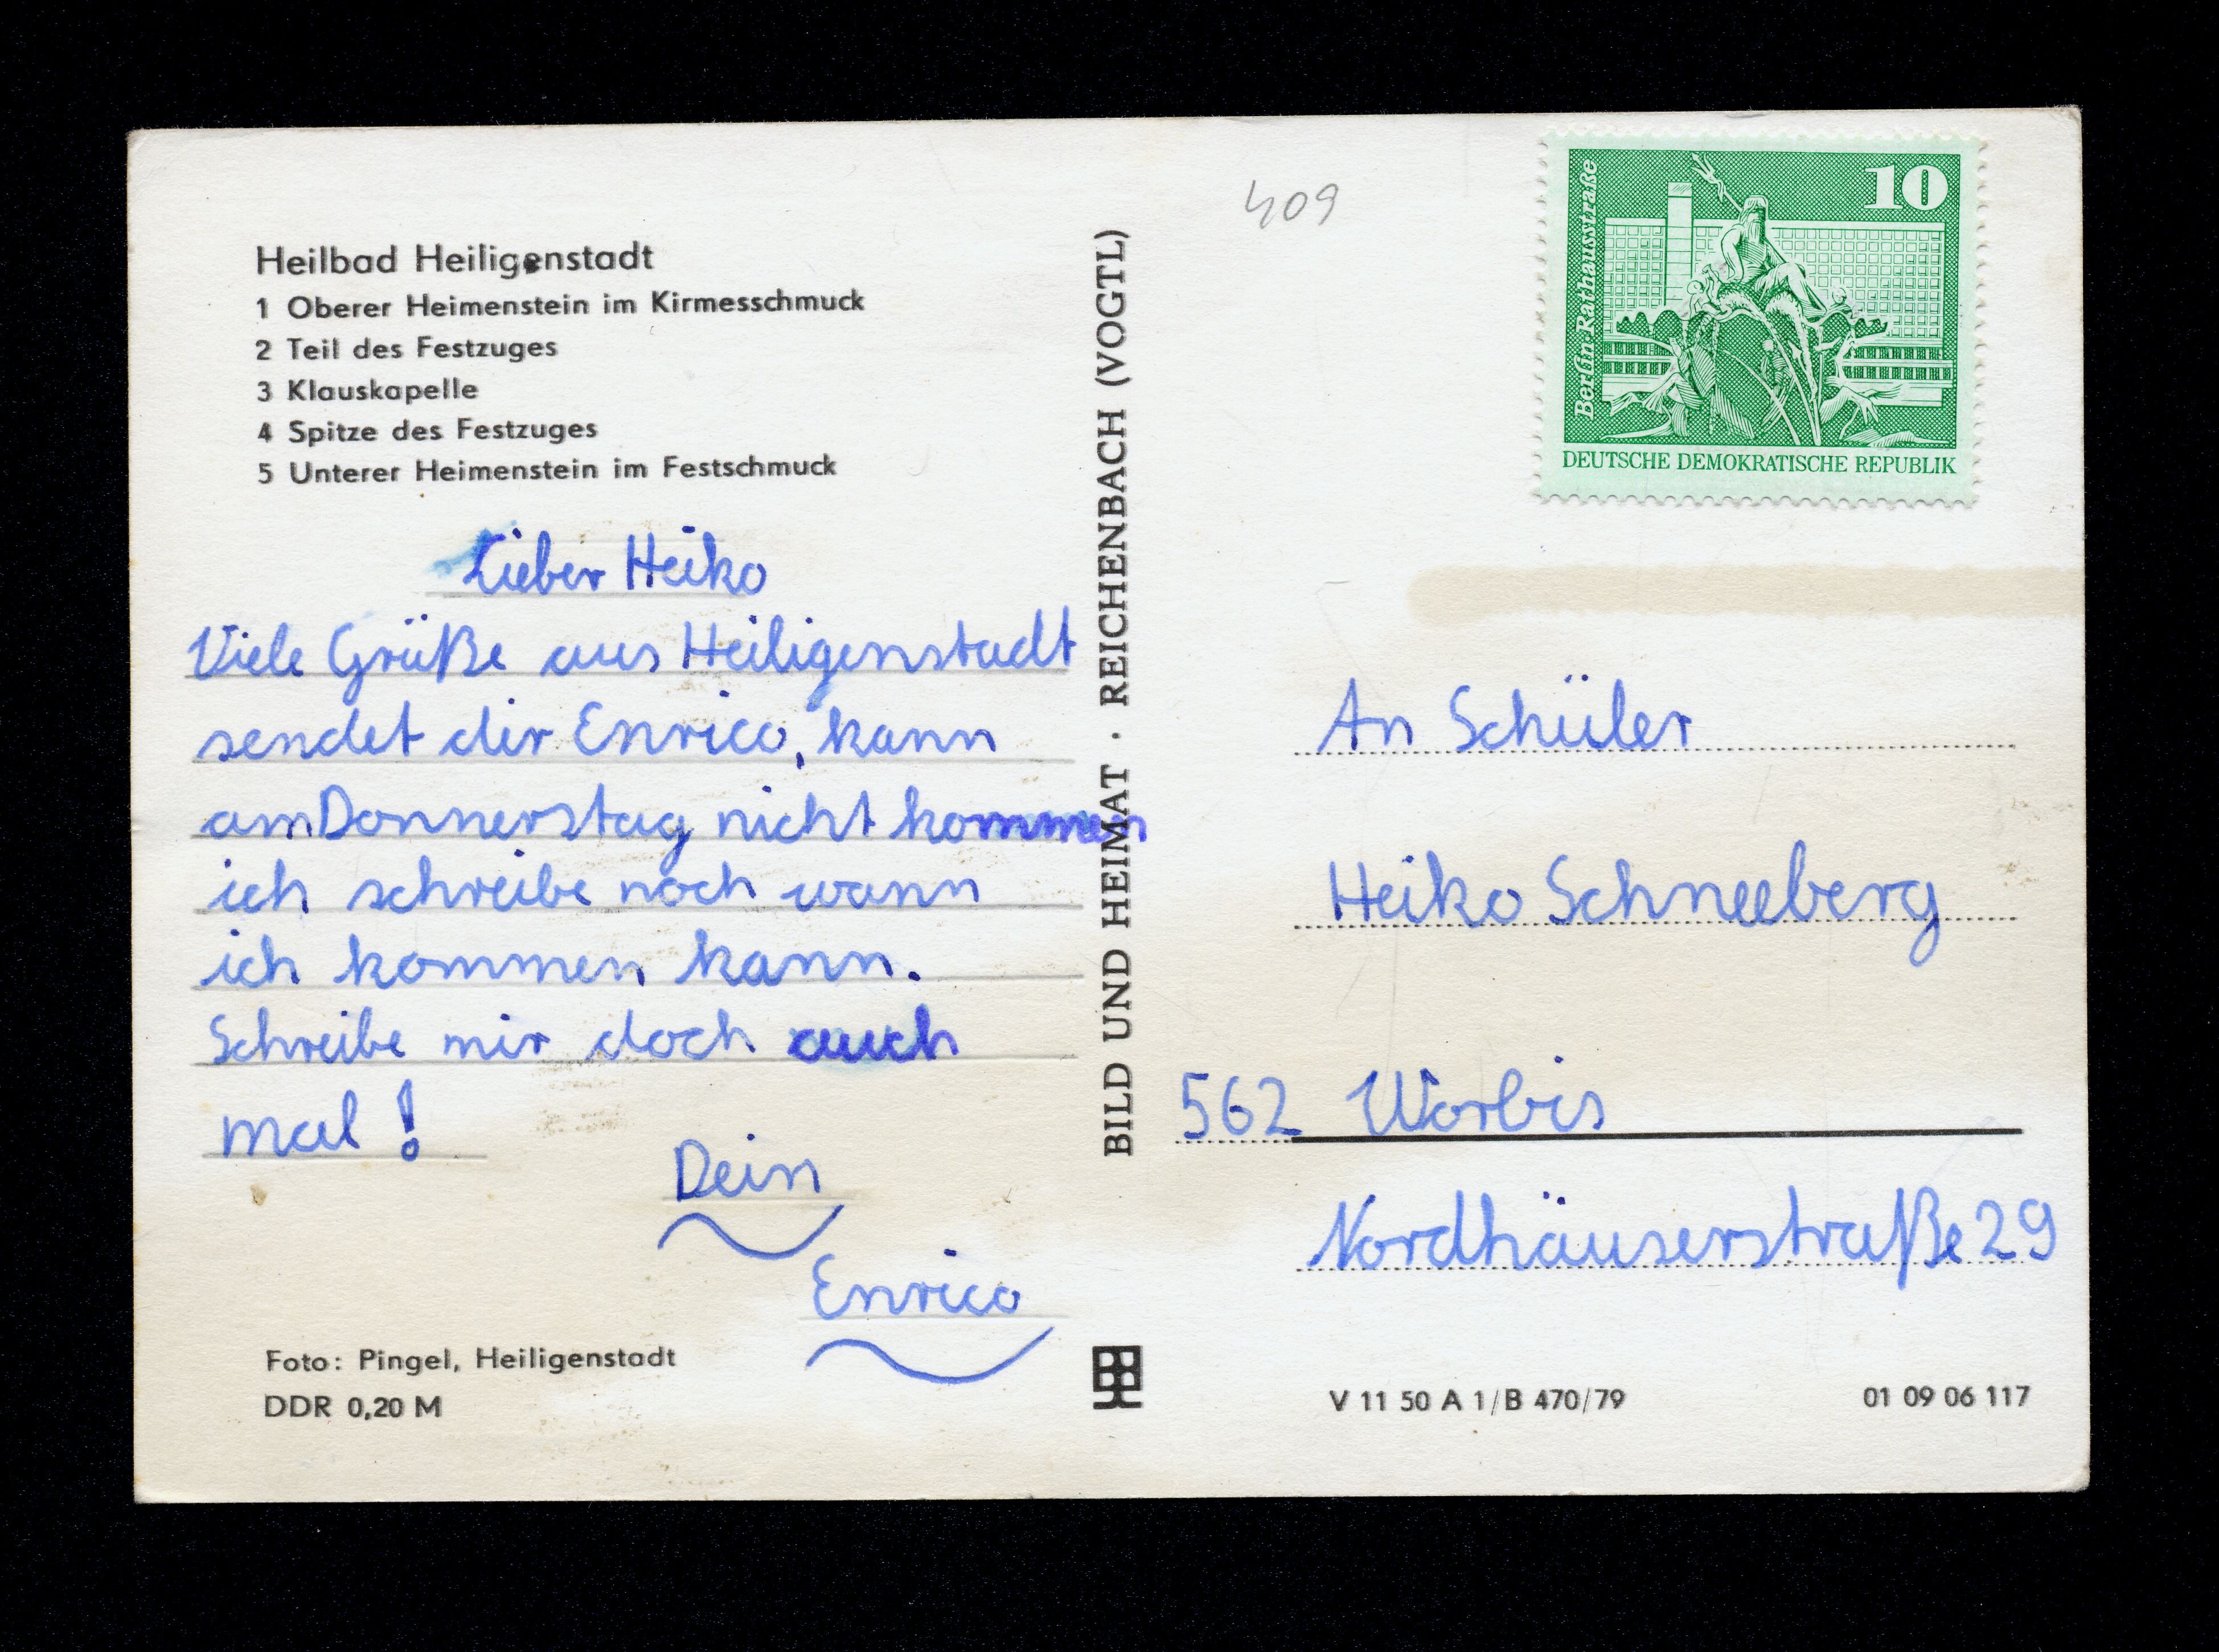 Heilbad Heiligenstadt
1 Oberer Heimenstein im Kirmesschmuck
2 Teil des Festzuges
3 Klauskapelle
4 Spitze des Festzuges
5 Unterer Heimenstein im Festschmuck
Lieber Heiko
Viele Grüße aus Heiligenstadt
sendet dir Enrico, kann
am Donnerstag nicht kommen
ich schreibe noch wann
ich kommen kann.
Schreibe mir doch auch
mal!
Dein
Enrico
Foto: Pingel, Heiligenstadt
DDR 0,20 M
BILD UND HEIMAT · REICHENBACH (VOGTL)
409
Berlin-Rathausstraße
10
DEUTSCHE DEMOKRATISCHE REPUBLIK
An Schüler
Heiko Schneeberg
562 Worbis
Nordhäuserstraße 29
V 11 50 A 1/B 470/79
01 09 06 117